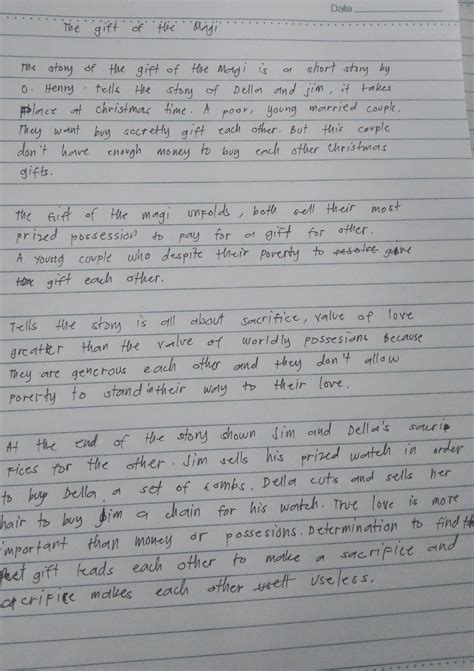 Date
The gift of the Magi
The story of the gift of the Magi is a short story by
O. Henry. tells the story of Della and jim, it takes
place at christmas time. A poor, young married couple.
They want buy secretly gift each other. But this couple
don't have enough money to buy each other Christmas
gifts.
The Gift of the magi unfolds, both sell their most
prized possession to pay for a gift for other.
A young couple who despite their poverty to resolve give
gift each other.
Tells the story is all about sacrifice, value of love
greatter than the value of worldly possesions because
They are generous each other and they don't allow
poverty to stand in their way to their love.
At the end of the story shown Jim and Della's sacri
fices for the other. Jim sells his prized watch in order
to buy Della a set of combs. Della cuts and sells her
hair to buy Jim a chain for his watch. True love is more
important than money or possesions. Determination to find the
gift leads each other to make a sacrifice and
sacrifice makes each other useless.